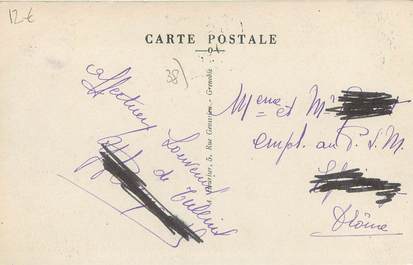 12 €
CARTE POSTALE
38)
affectueux
Souvenir
de Tullins
5, Rue - Grenoble
Mme et Mr
empl. au P. L. M.
Drôme